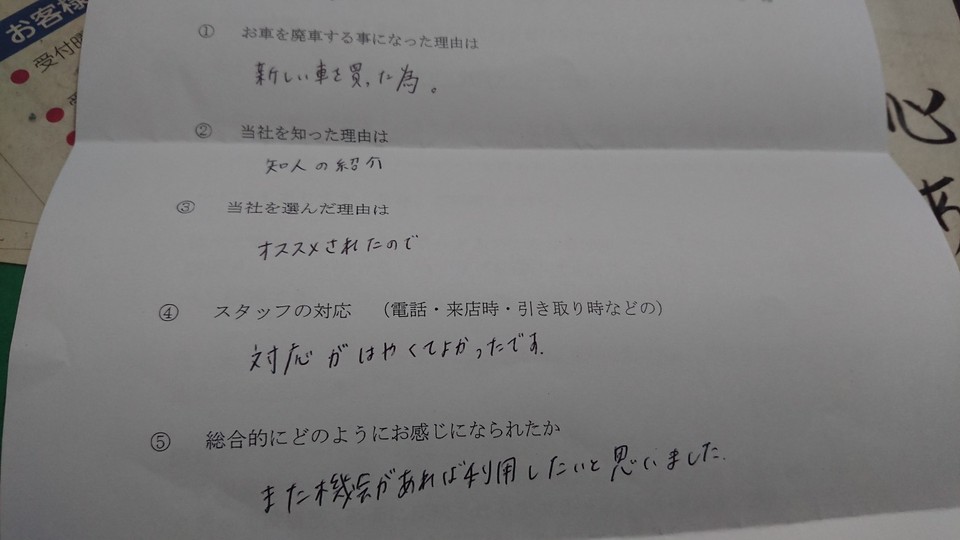 お客様
受付時
① お車を廃車する事になった理由は
新しい車を買った為。
② 当社を知った理由は
知人の紹介
③ 当社を選んだ理由は
オススメされたので
④ スタッフの対応 （電話・来店時・引き取り時などの）
対応がはやくてよかったです.
⑤ 総合的にどのようにお感じになられたか
また機会があれば利用したいと思いました.
心